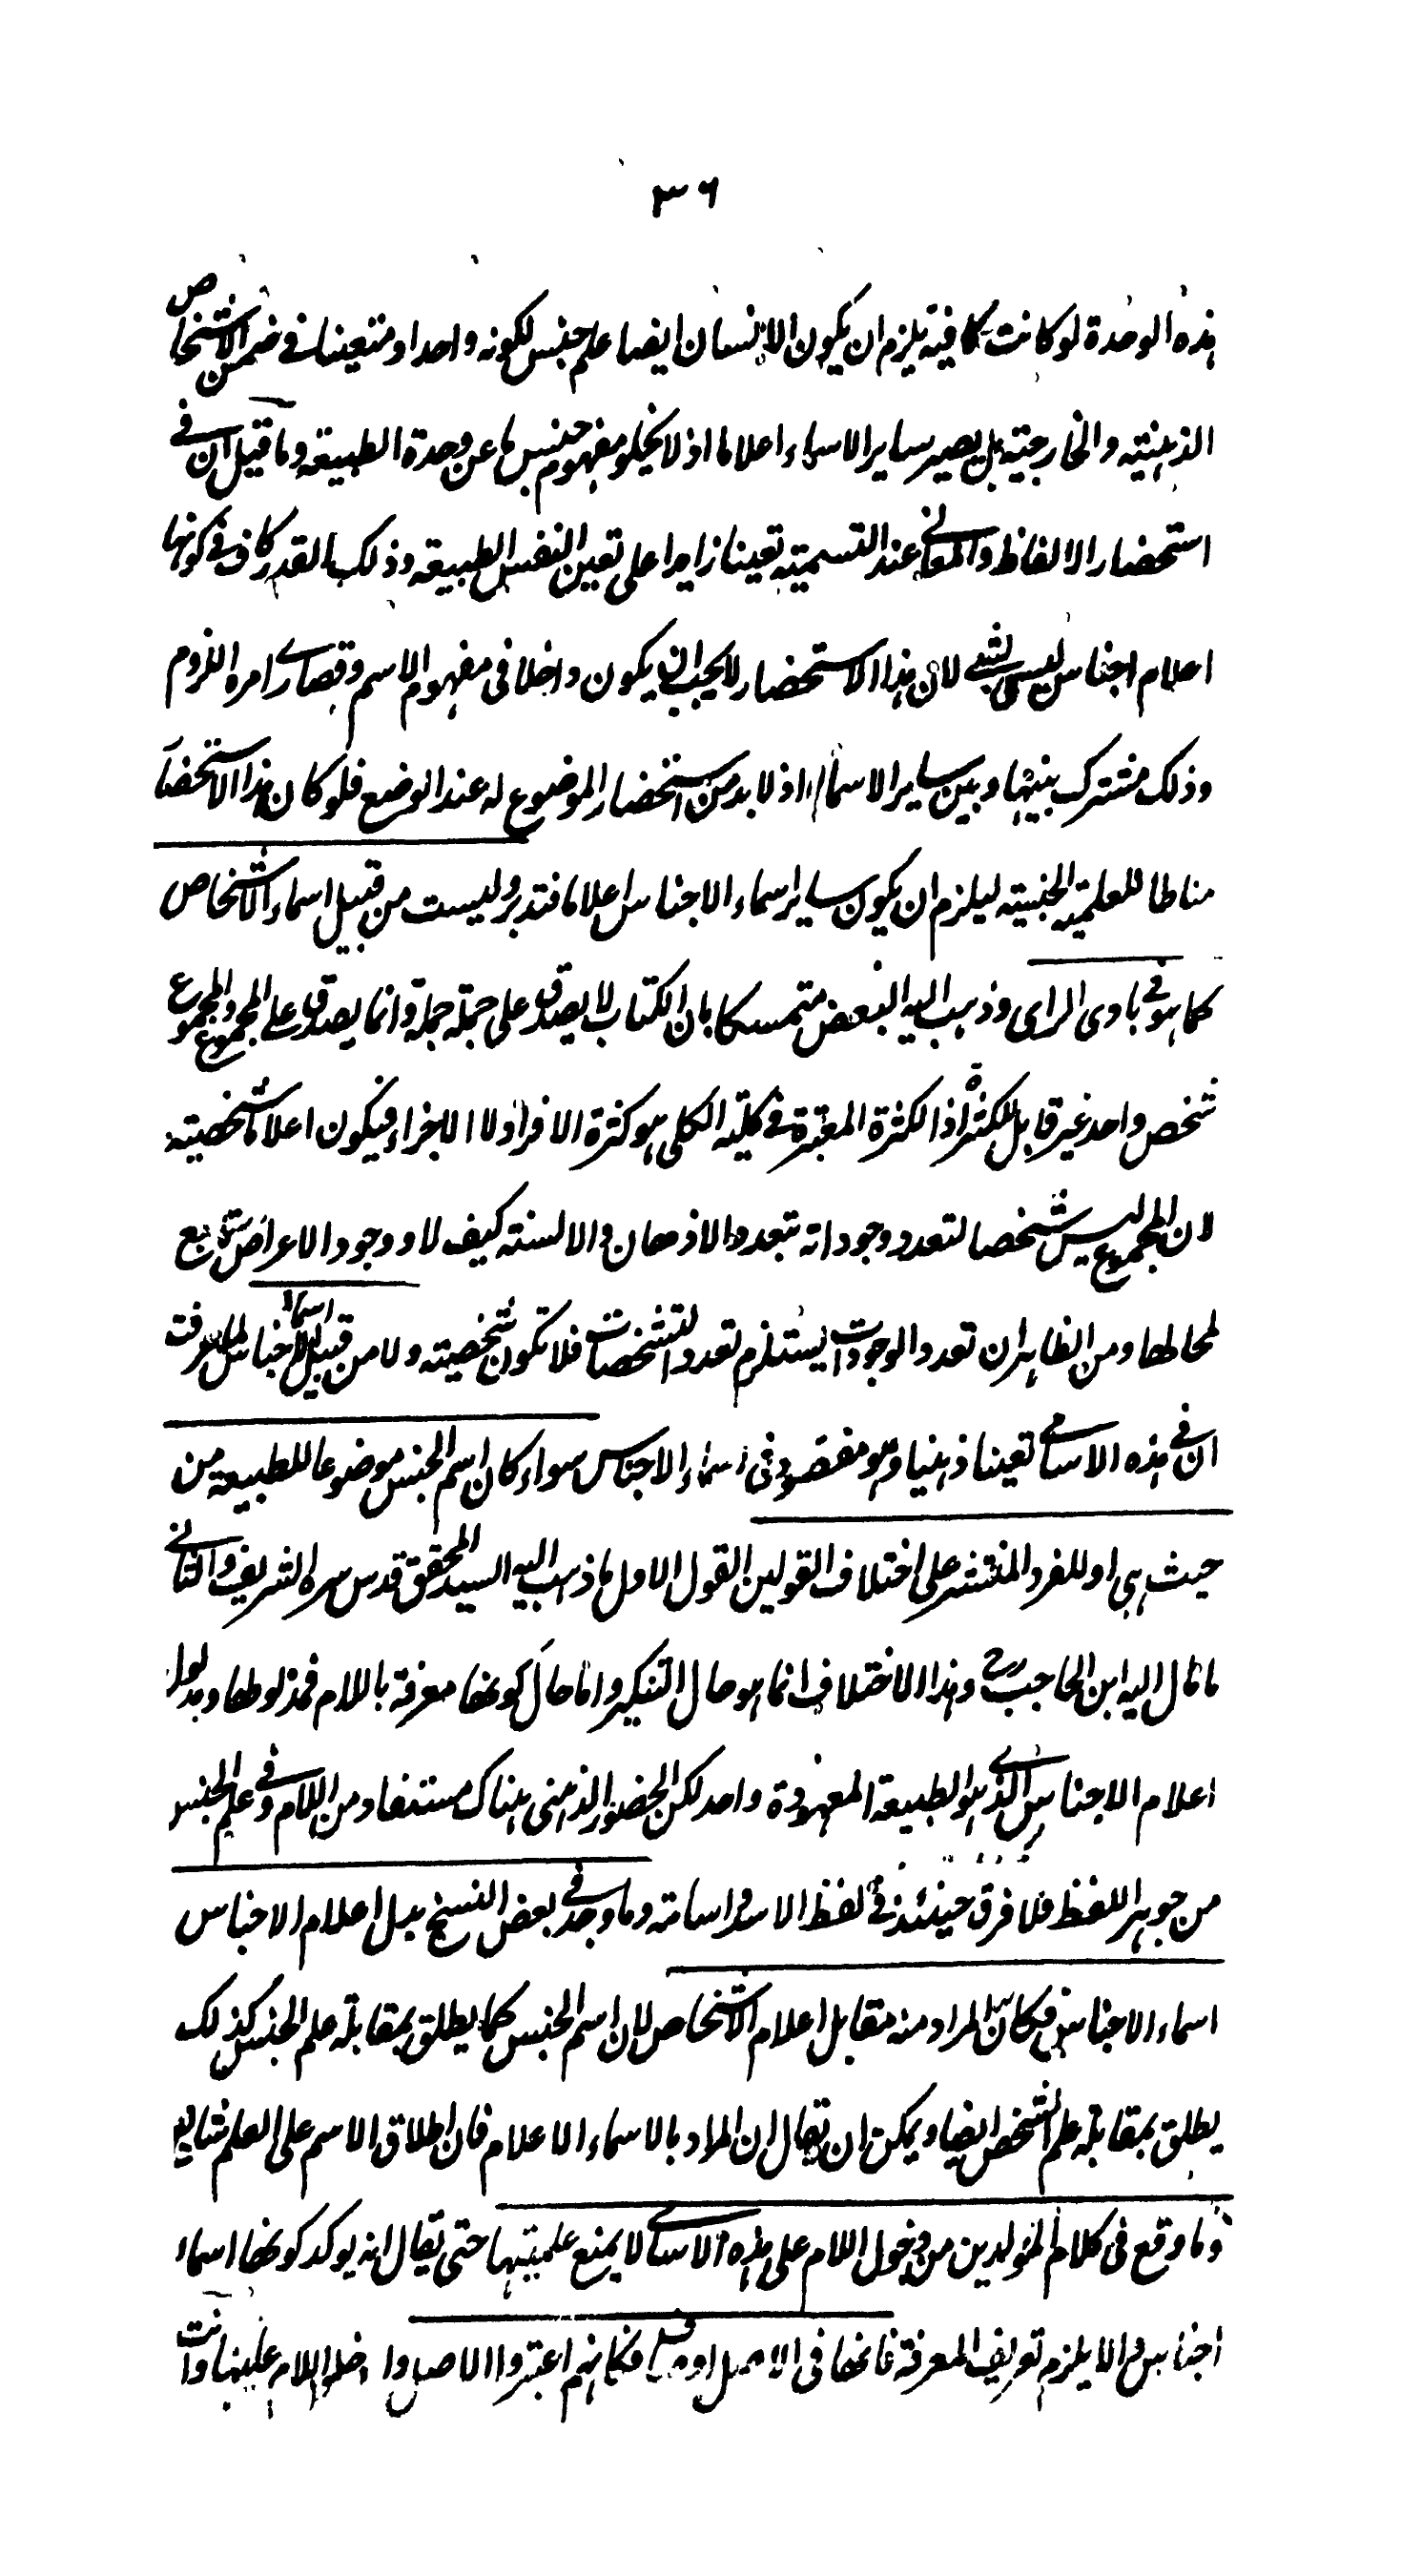 ٣٦
هذه الوحدة لو كانت كافية يلزم ان يكون الانسان ايضا علم جنس لكونه واحدا ومتعينا في ضمن الاشخاص
الذهنية والخارجية بل يصير ساير الاسماء اعلاما اذ لا يخلو مفهوم جنس ما عن وحدة الطبيعة وما قيل ان في
استحضار الالفاظ والمعاني عند التسمية تعينا زايدا على تعين النفس الطبيعة وذلك القدر كاف في كونها
اعلام اجناس ليس بشيء لان هذا الاستحضار لا يجب ان يكون داخلا في مفهوم الاسم وقصارى امره اللزوم
وذلك مشترك بينها وبين ساير الاسماء اذ لا بد من استحضار الموضوع له عند الوضع فلو كان هذا الاستحضار
مناطا للعلمية الجنسية ليلزم ان يكون ساير اسماء الاجناس اعلاما فتدبر وليست من قبيل اسماء الاشخاص
كما هو في بادى الراى وذهب اليه البعض متمسكا بان الكتاب لا يصدق على جملة جملة وانما يصدق على المجموع والمجموع
شخص واحد غير قابل للكثرة اذ الكثرة المعتبرة في كلية الكلى هو كثرة الافراد لا الاجزاء فيكون اعلاما شخصية
لان المجموع ليس شخصا لتعدد وجوداته بتعدد الاذهان والالسنة كيف لا ووجود الاعراض تابع
لمحالها ومن الظاهر ان تعدد الوجودات يستلزم تعدد التشخصات فلا تكون شخصية ولا من قبيل اسماء الاجناس لما عرفت
ان في هذه الاسامى تعينا ذهنيا وهو مفقود في اسماء الاجناس سواء كان اسم الجنس موضوعا للطبيعة من
حيث هي او للفرد المنتشر على اختلاف القولين القول الاول ما ذهب اليه السيد المحقق قدس سره الشريف والثاني
ما مال اليه ابن الحاجب رح وهذا الاختلاف انما هو حال التنكير واما حال كونها معرفة باللام فمدلولها ومدلول
اعلام الاجناس الذي هو الطبيعة المعهودة واحد لكن الحضور الذهنى هناك مستفاد من اللام وفي علم الجنس
من جوهر اللفظ فلا فرق حينئذ في لفظ الاسد واسامة وما وجد في بعض النسخ بدل اعلام الاجناس
اسماء الاجناس فكان المراد منه مقابل اعلام الاشخاص لان اسم الجنس كما يطلق بمقابلة علم الجنس كذلك
يطلق بمقابلة علم الشخص ايضا ويمكن ان يقال ان المراد بالاسماء الاعلام فان اطلاق الاسم على العلم شايع
وما وقع فى كلام المولدين من دخول اللام على هذه الاسامى لا يمنع علميتها حتى يقال انه يوكد كونها اسماء
اجناس والا يلزم تعريف المعرفة فانها فى الاصل فكانهم اعتبروا الاصل وادخلوا اللام عليها وانت